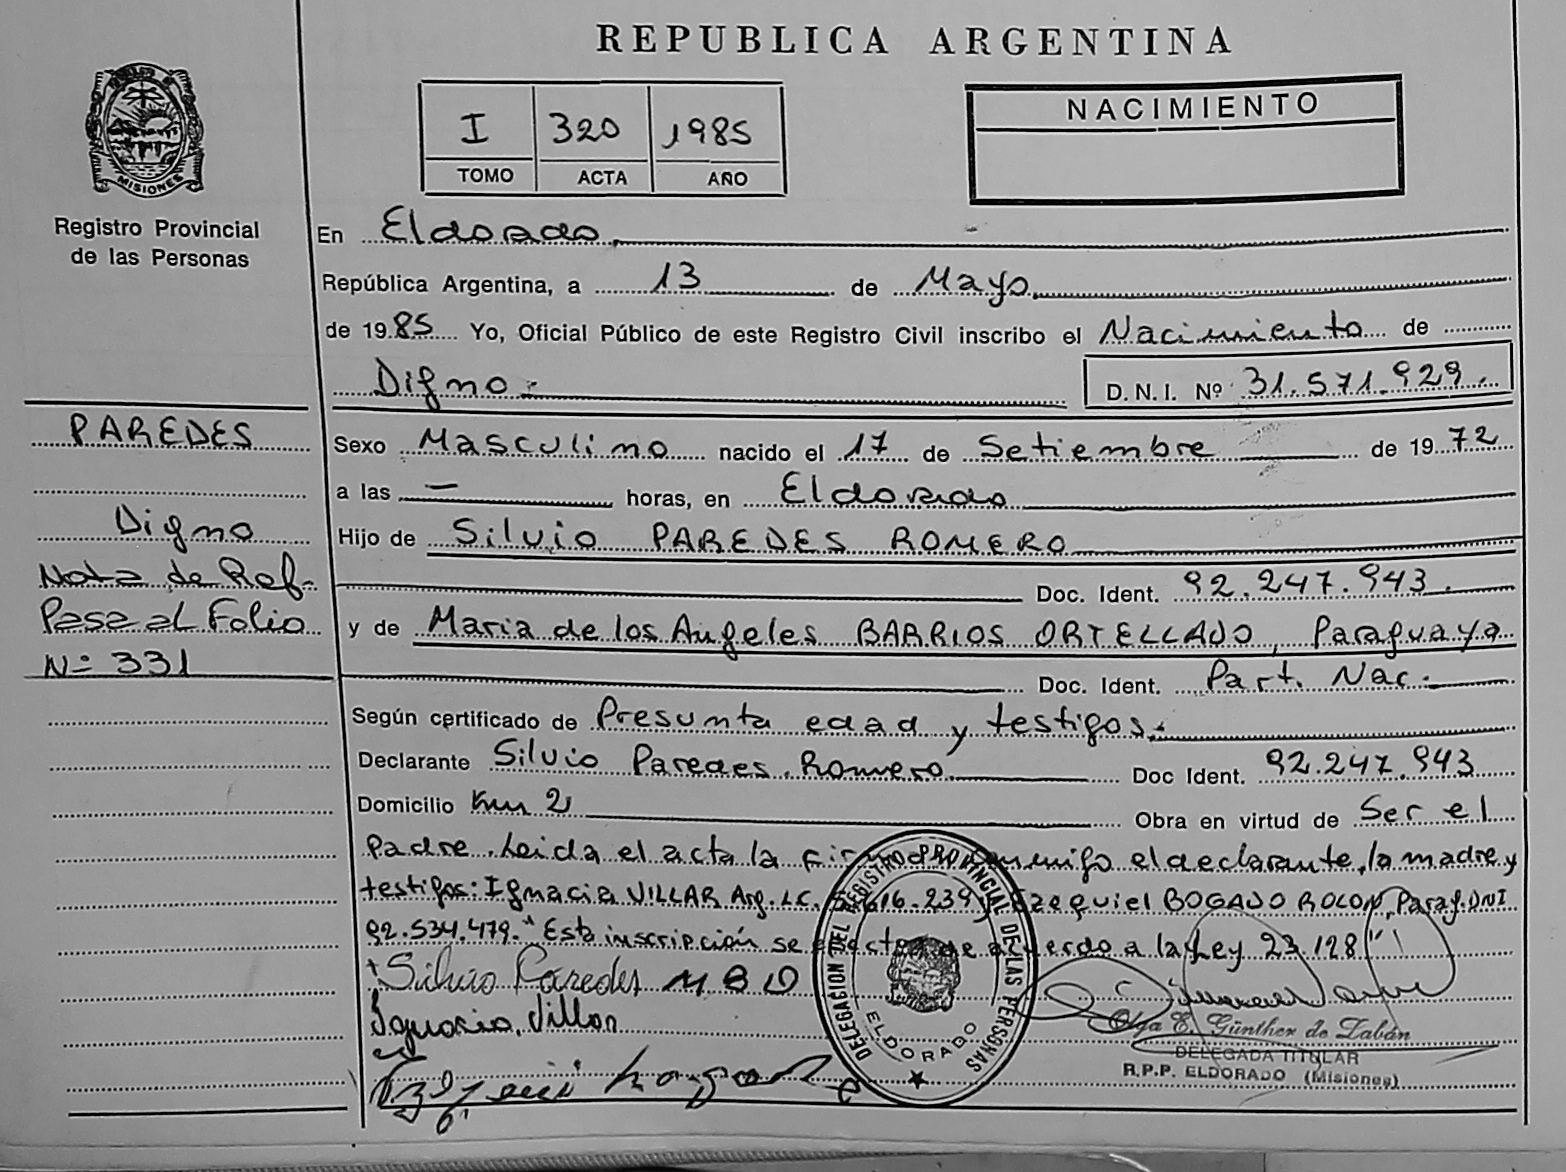 REPUBLICA ARGENTINA
I 320 1985
TOMO ACTA AÑO
NACIMIENTO
MISIONES
Registro Provincial
de las Personas
En Eldorado
República Argentina, a 13 de Mayo
de 1985 Yo, Oficial Público de este Registro Civil inscribo el Nacimiento de
Digno
D. N. I. Nº 31.571.929.
PAREDES
Digno
Nota de Ref-
Pasa al Folio
Nº 331
Sexo Masculino nacido el 17 de Setiembre de 1972
a las — horas, en Eldorado
Hijo de Silvio PAREDES ROMERO
Doc. Ident. 92.247.943.
y de Maria de los Angeles BARRIOS ORTELLADO, Paraguaya
Doc. Ident. Part. Nac.
Según certificado de Presunta edad y testigos.
Declarante Silvio Paredes Romero Doc Ident. 92.247.943
Domicilio Km 2 Obra en virtud de Ser el
padre. Leida el acta la conmigo el declarante, la madre y
testigos: Ignacia VILLAR Arg. L.C. 616.239 y Ezequiel BOGADO ROLON, Parag. DNI
92.534.479. "Esta inscripción se efectua de acuerdo a la Ley 23.128"
Silvio Paredes M B O
Ignacia Villar
DELEGACION DEL REGISTRO PROVINCIAL DE LAS PERSONAS
ELDORADO
Olga E. Günther de Zabán
DELEGADA TITULAR
R.P.P. ELDORADO (Misiones)